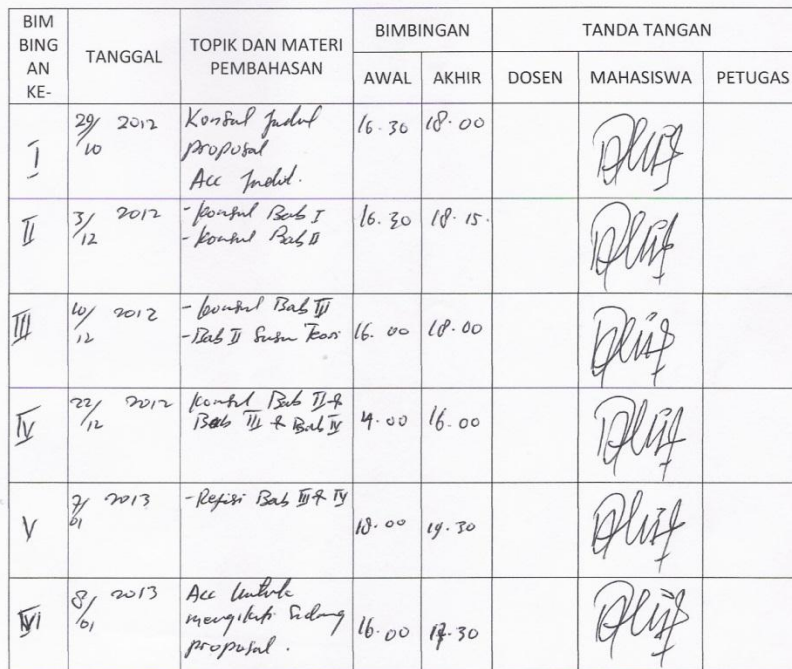 BIM BING AN KE-
TANGGAL
TOPIK DAN MATERI PEMBAHASAN
BIMBINGAN
TANDA TANGAN
AWAL
AKHIR
DOSEN
MAHASISWA
PETUGAS
I
29/10 2012
Konsul Judul
proposal
Acc Judul.
16.30
18.00
II
3/12 2012
- Konsul Bab I
- Konsul Bab II
16.30
18.15.
III
10/12 2012
- Konsul Bab III
- Bab II Susun Teori
16.00
18.00
IV
22/12 2012
Konsul Bab II &
Bab III & Bab IV
4.00
16.00
V
7/01 2013
- Refisi Bab III & IV
18.00
19.30
VI
8/01 2013
Acc Untuk
mengikuti Sidang
proposal.
16.00
17.30